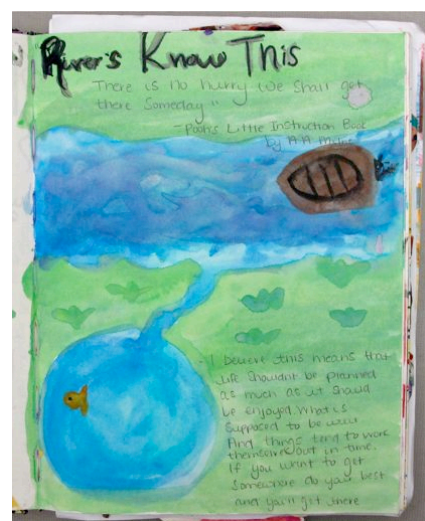 River's Know This
There is no hurry we shall get
there someday"
- Pooh's Little Instruction Book
by A.A
- I believe this means that
life shouldn't be planned
as much as it should
be enjoyed. What is
supposed to be will
And things tend to work
themselves out in time.
If you want to get
somewhere do your best
and you'll get there